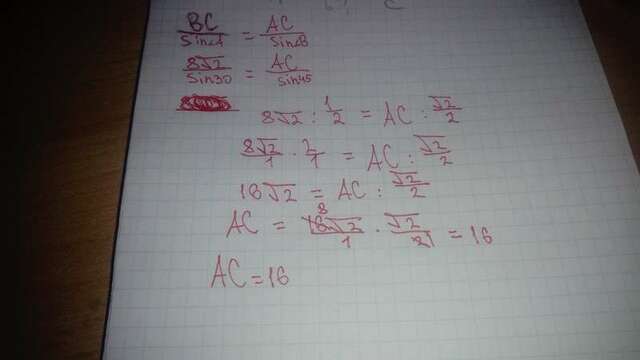 BC/sin∠A = AC/sin∠B
8√2/sin30 = AC/sin45
8√2 : 1/2 = AC : √2/2
8√2/1 · 2/1 = AC : √2/2
16√2 = AC : √2/2
AC = 16√2/1 · √2/2 = 16
AC = 16